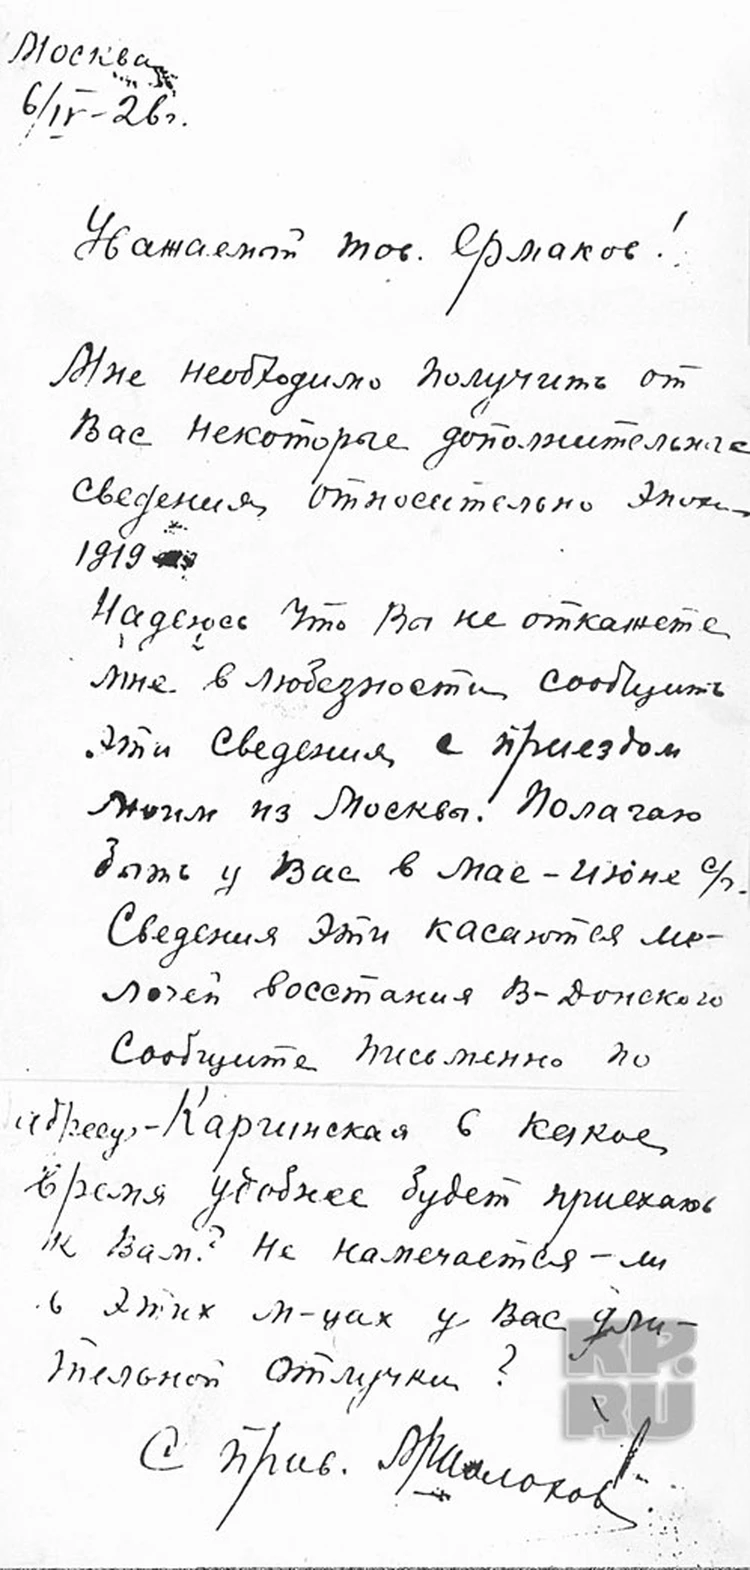 Москва
6/IV-26г.
Уважаемый тов. Ермаков!
Мне необходимо получить от
Вас некоторые дополнительные
сведения относительно эпохи
1919
Надеюсь что Вы не откажете
мне в любезности сообщить
эти сведения с приездом
моим из Москвы. Полагаю
быть у Вас в мае – июне с/г.
Сведения эти касаются ме-
лочей восстания В-Донского
Сообщите письменно по
адресу – Каргинская в какое
время удобнее будет приехать
к Вам? Не намечается – ли
в этих м-цах у Вас дли-
тельной отлучки?
С прив. М Шолохов
KP.
RU